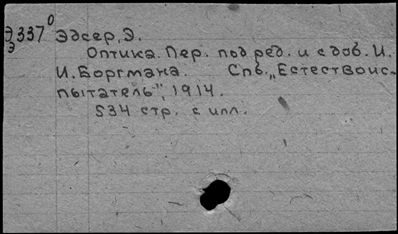 Э337⁰ Эдсер, Э.
Э
Оптика. Пер. под ред. и с доб. И.
И. Боргмана. Спб., „Естествоис-
пытатель", 1914.
534 стр. с илл.